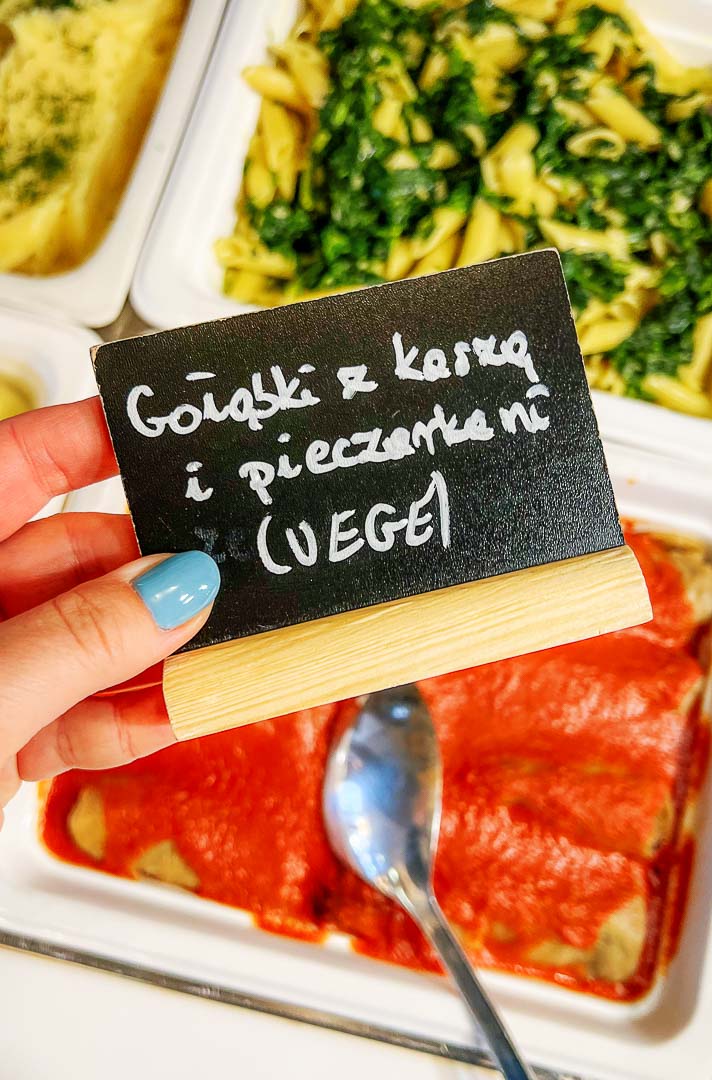 Gołąbki z kaszą
i pieczarkami
(VEGE)